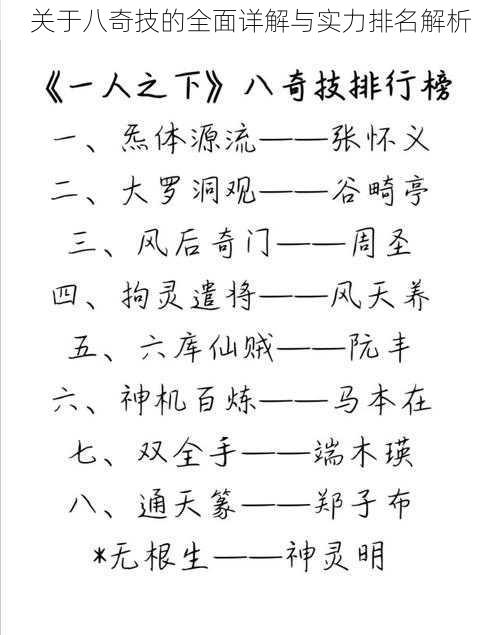 关于八奇技的全面详解与实力排名解析
《一人之下》八奇技排行榜
一、炁体源流——张怀义
二、大罗洞观——谷畸亭
三、风后奇门——周圣
四、拘灵遣将——风天养
五、六库仙贼——阮丰
六、神机百炼——马本在
七、双全手——端木瑛
八、通天箓——郑子布
*无根生——神灵明